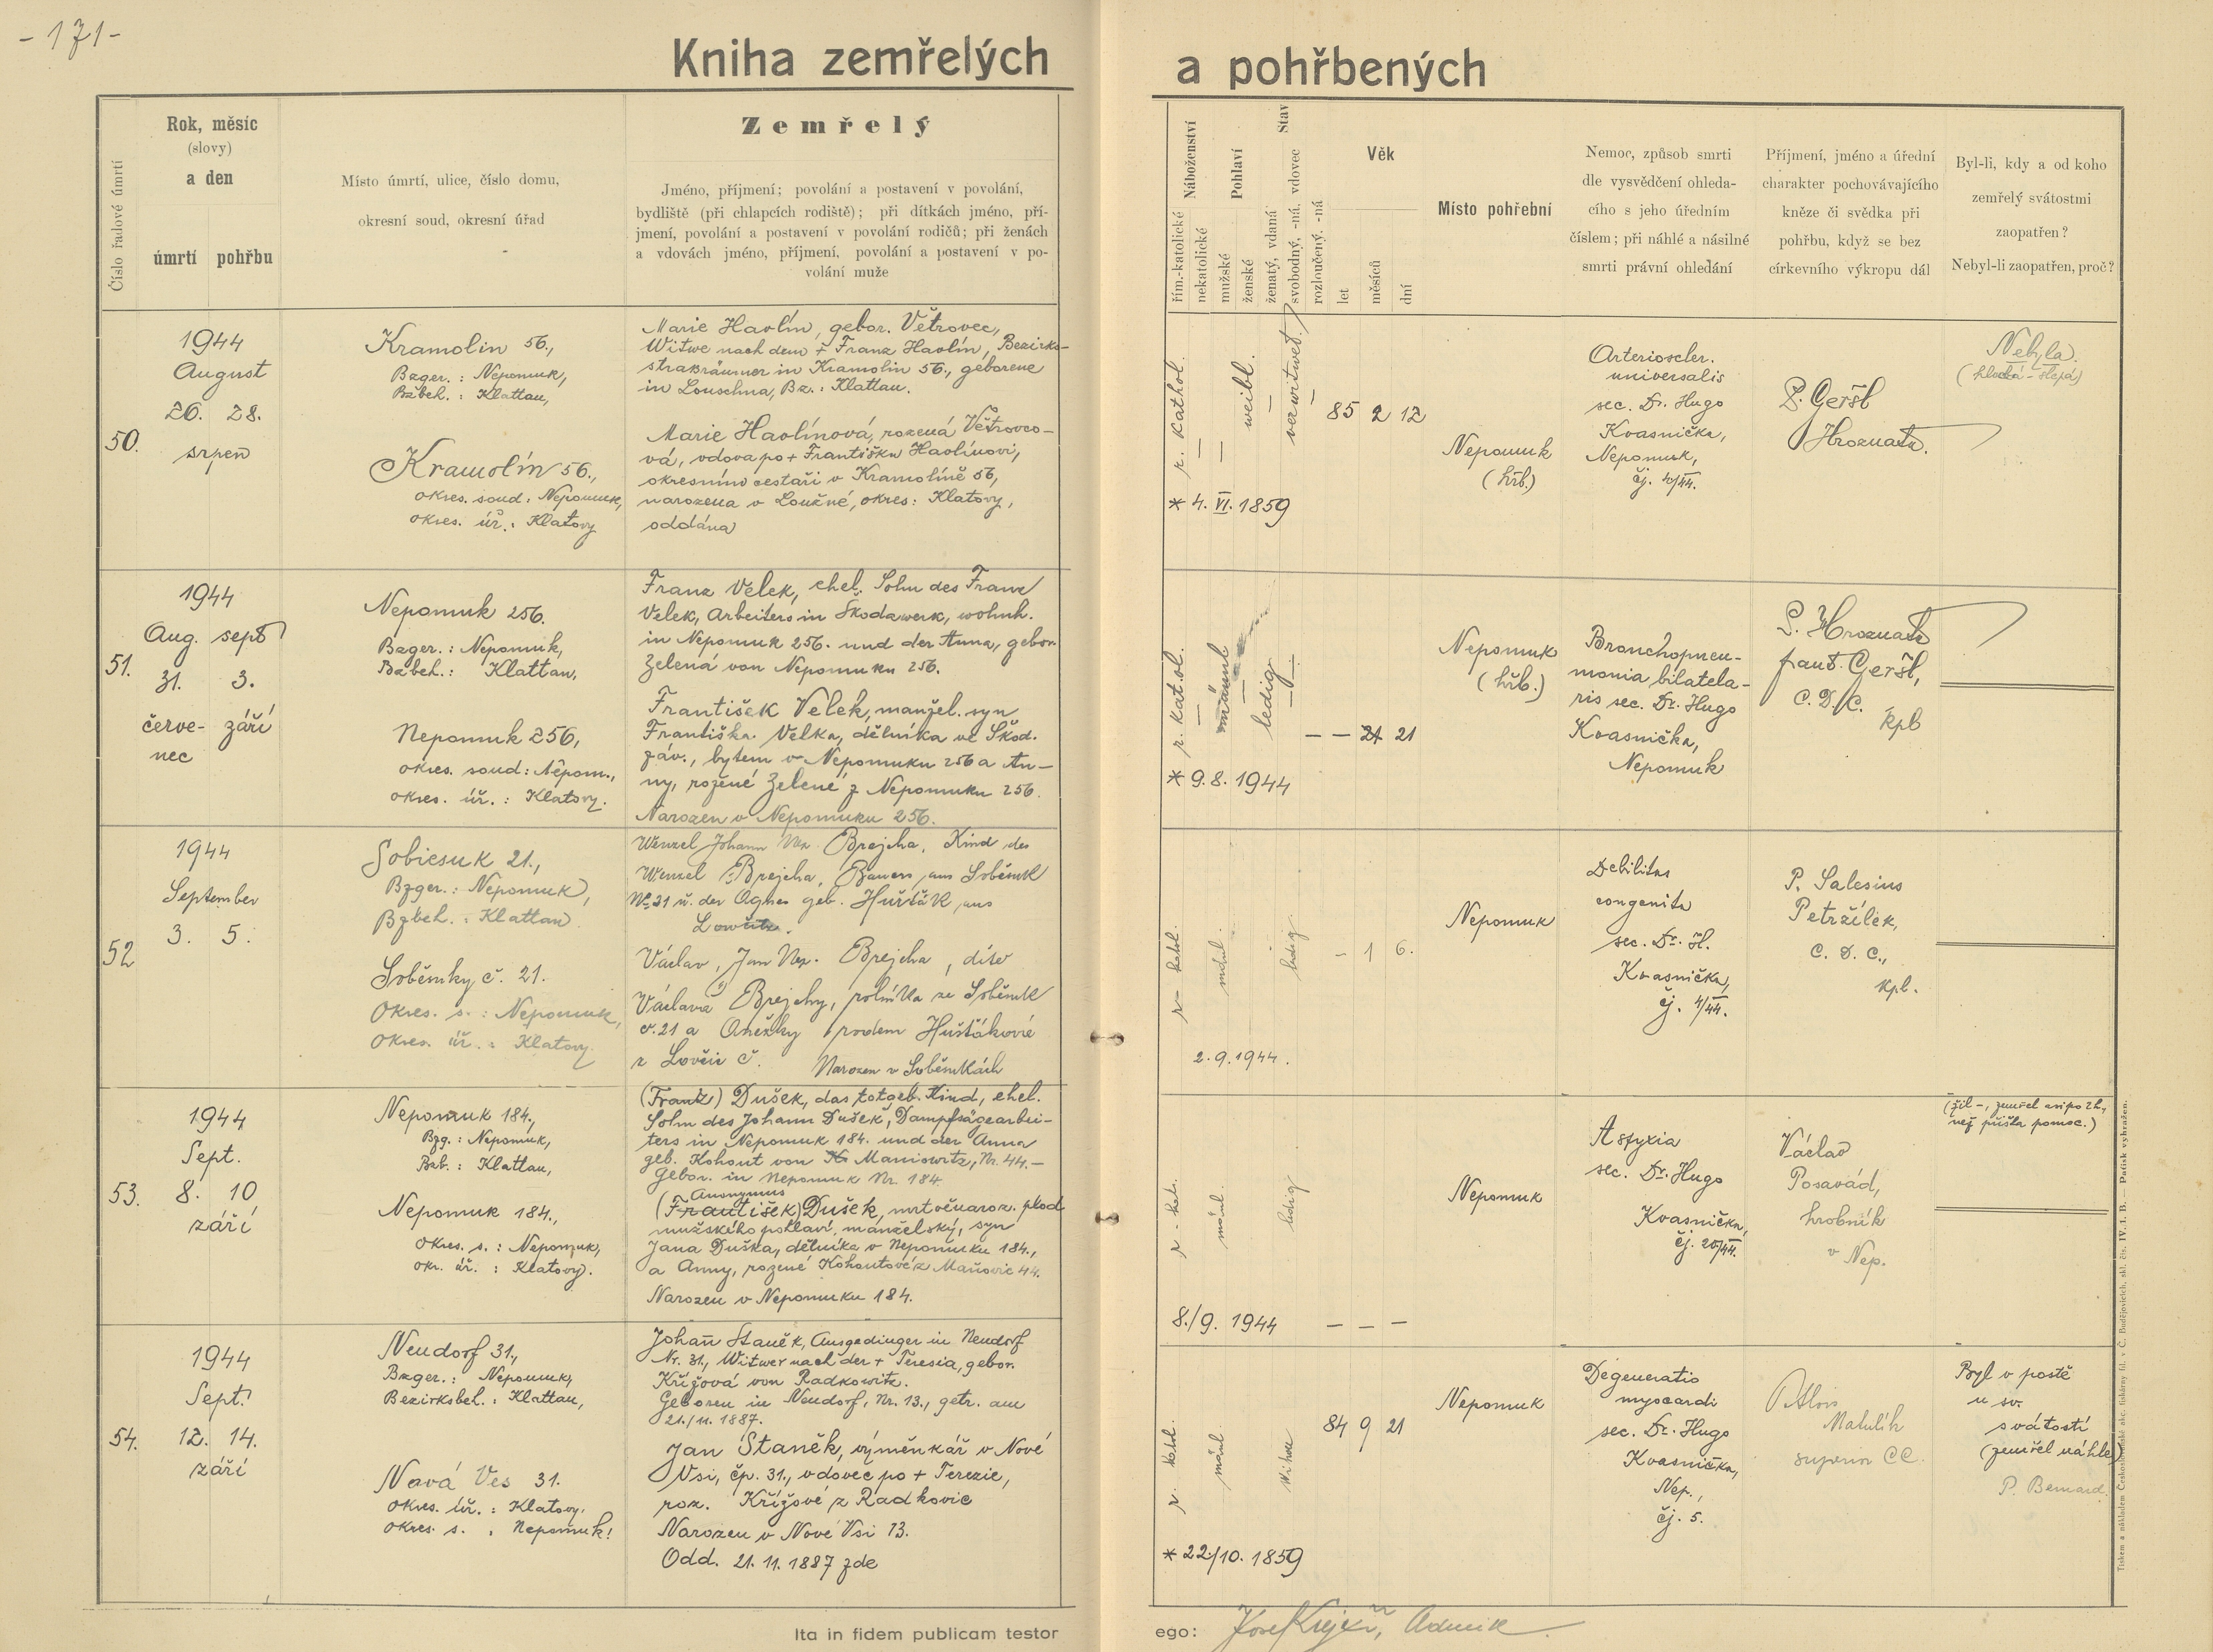 - 171 -
Kniha zemřelých a pohřbených
Číslo řadové úmrtí
Rok, měsíc
(slovy)
a den
úmrtí pohřbu
Místo úmrtí, ulice, číslo domu,
okresní soud, okresní úřad
Zemřelý
Jméno, příjmení; povolání a postavení v povolání,
bydliště (při chlapcích rodiště); při dítkách jméno, pří-
jmení, povolání a postavení v povolání rodičů; při ženách
a vdovách jméno, příjmení, povolání a postavení v po-
volání muže
Náboženství
řím.-katolické
nekatolické
Pohlaví
mužské
ženské
Stav
ženatý, vdaná
svobodný, -ná, vdovec
rozloučený, -ná
Věk
let
měsíců
dní
Místo pohřební
Nemoc, způsob smrti
dle vysvědčení ohleda-
cího s jeho úředním
číslem; při náhlé a násilné
smrti právní ohledání
Příjmení, jméno a úřední
charakter pochovávajícího
kněze či svědka při
pohřbu, když se bez
církevního výkropu dál
Byl-li, kdy a od koho
zemřelý svátostmi
zaopatřen?
Nebyl-li zaopatřen, proč?
50.
1944
August
26. 28.
srpen
Kramolin 56.,
Bzger.: Nepomuk,
Bzbeh.: Klattau,
Kramolín 56.,
okres. soud: Nepomuk,
okres. úř.: Klatovy
Marie Havlín, gebor. Větrovec,
Witwe nach dem + Franz Havlín, Bezirks-
straßräumer in Kramolin 56., geborene
in Louschna, Bz.: Klattau.
Marie Havlínová, rozená Větrovco-
vá, vdova po + Františku Havlínovi,
okresním cestaři v Kramolíně 56,
narozena v Loučné, okres: Klatovy,
oddána
r. kathol.
weibl.
verwitwet
85 2 12
* 4. VI. 1859
Nepomuk
(hřb.)
Arterioscler.
universalis
sec. Dr. Hugo
Kvasnička,
Nepomuk,
P. Geršl
Hroznata.
Nebyla.
(hluchá - slepá)
51.
1944
Aug. sept
31. 3.
červe- září
nec
Nepomuk 256.
Bzger.: Nepomuk,
Bzbeh.: Klattau,
Nepomuk 256,
okres. soud: Nepom.,
okres. úř.: Klatovy.
Franz Velek, ehel. Sohn des Franz
Velek, Arbeiters in Škodawerk, wohnh.
in Nepomuk 256. und der Anna, gebor.
Zelená von Nepomuku 256.
František Velek, manžel. syn
Františka Velka, dělníka ve Škod.
záv., bytem v Nepomuku 256 a An-
ny, rozené Zelené z Nepomuku 256.
Narozen v Nepomuku 256.
r. katol.
männl
ledig
— — 21 21
* 9.8. 1944
Nepomuk
(hřb.)
Bronchopneu-
monia bilatela-
ris sec. Dr. Hugo
Kvasnička,
Nepomuk
P. Hroznata
Geršl,
C.D.C.
kpl
52
1944
September
3. 5.
Sobiesuk 21.,
Bzger.: Nepomuk,
Bzbeh.: Klattau
Soběsuky č. 21.
Okres. s.: Nepomuk,
Okres. úř.: Klatovy.
Wenzel Johann Nep. Brejcha, Kind des
Wenzel Brejcha, Bauers aus Soběsuk
No 21 u. der Agnes geb. Hušták aus
Václav, Jan Nep. Brejcha, dítě
Václava Brejchy, rolníka ze Soběsuk
č. 21 a Anežky rodem Huštákové
z Lovčic č. Narozen v Soběsukách
r- katol.
männl.
ledig
- 1 6.
2.9.1944.
Nepomuk
Debilitas
congenita
sec. Dr. H.
Kvasnička,
čj. 4/44.
P. Salesius
Petržílek,
C. D. C.,
kpl.
53.
1944
Sept.
8. 10
září
Nepomuk 184.,
Bzg.: Nepomuk,
Bzb.: Klattau,
Nepomuk 184.,
Okres. s.: Nepomuk,
okr. úř.: Klatovy.
(Franz) Dušek, das totgeb. Kind, ehel.
Sohn des Johann Dušek, Dampfsägearbei-
ters in Nepomuk 184. und der Anna
geb. Kohout von Maniowitz, Nr. 44.-
Gebor. in Nepomuk Nr. 184
Anonymus
(František) Dušek, mrtvěnaroz. plod
mužského pohlaví, manželský, syn
Jana Duška, dělníka v Nepomuku 184.,
a Anny, rozené Kohoutové z Maňovic 44.
Narozen v Nepomuku 184.
r - kat.
männl.
ledig
8./9. 1944 — — —
Nepomuk
Asfyxia
sec. Dr. Hugo
Kvasnička,
čj. 20/44.
Václav
Posavád,
hrobník
v Nep.
(žil -, zemřel asi po 2 h.,
než přišla pomoc.)
54.
1944
Sept.
12. 14.
září
Neudorf 31.,
Bzger.: Nepomuk,
Bezirksbeh.: Klattau,
Nová Ves 31.
Okres. úř.: Klatovy.
Okres. s. : Nepomuk!
Johann Staněk, Ausgedinger in Neudorf
Nr. 31., Witwer nach der + Teresia, gebor.
Křížová von Radkowitz.
Geboren in Neudorf, Nr. 13., getr. am
21./11. 1887.
Jan Staněk, výměnkář v Nové
Vsi, čp. 31., vdovec po + Terezie,
roz. Křížové z Radkovic
Narozen v Nové Vsi 13.
Odd. 21. 11. 1887 zde
r. katol.
männl
84 9 21
* 22/10. 1859
Nepomuk
Degeneratio
myocardi
sec. Dr. Hugo
Kvasnička,
Nep.,
čj. 5.
P. Alois
Matulík
superior CC.
Byl v postě
u sv.
svátostí
(zemřel náhle)
P. Bernard.
Ita in fidem publicam testor
ego: Josef Krejčí, Admin
Tiskem a nákladem Českoslovanské akc. tiskárny fil. v Č. Budějovicích, skl. čís. IV. 1. B. — Patisk vyhražen.